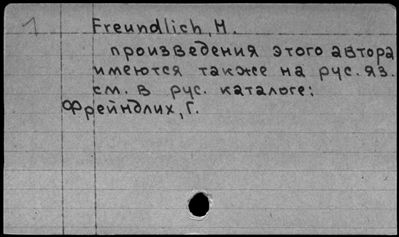 1
Freundlich, H.
произведения этого автора
имеются также на рус. яз.
см. в рус. каталоге:
Фрейндлих, Г.